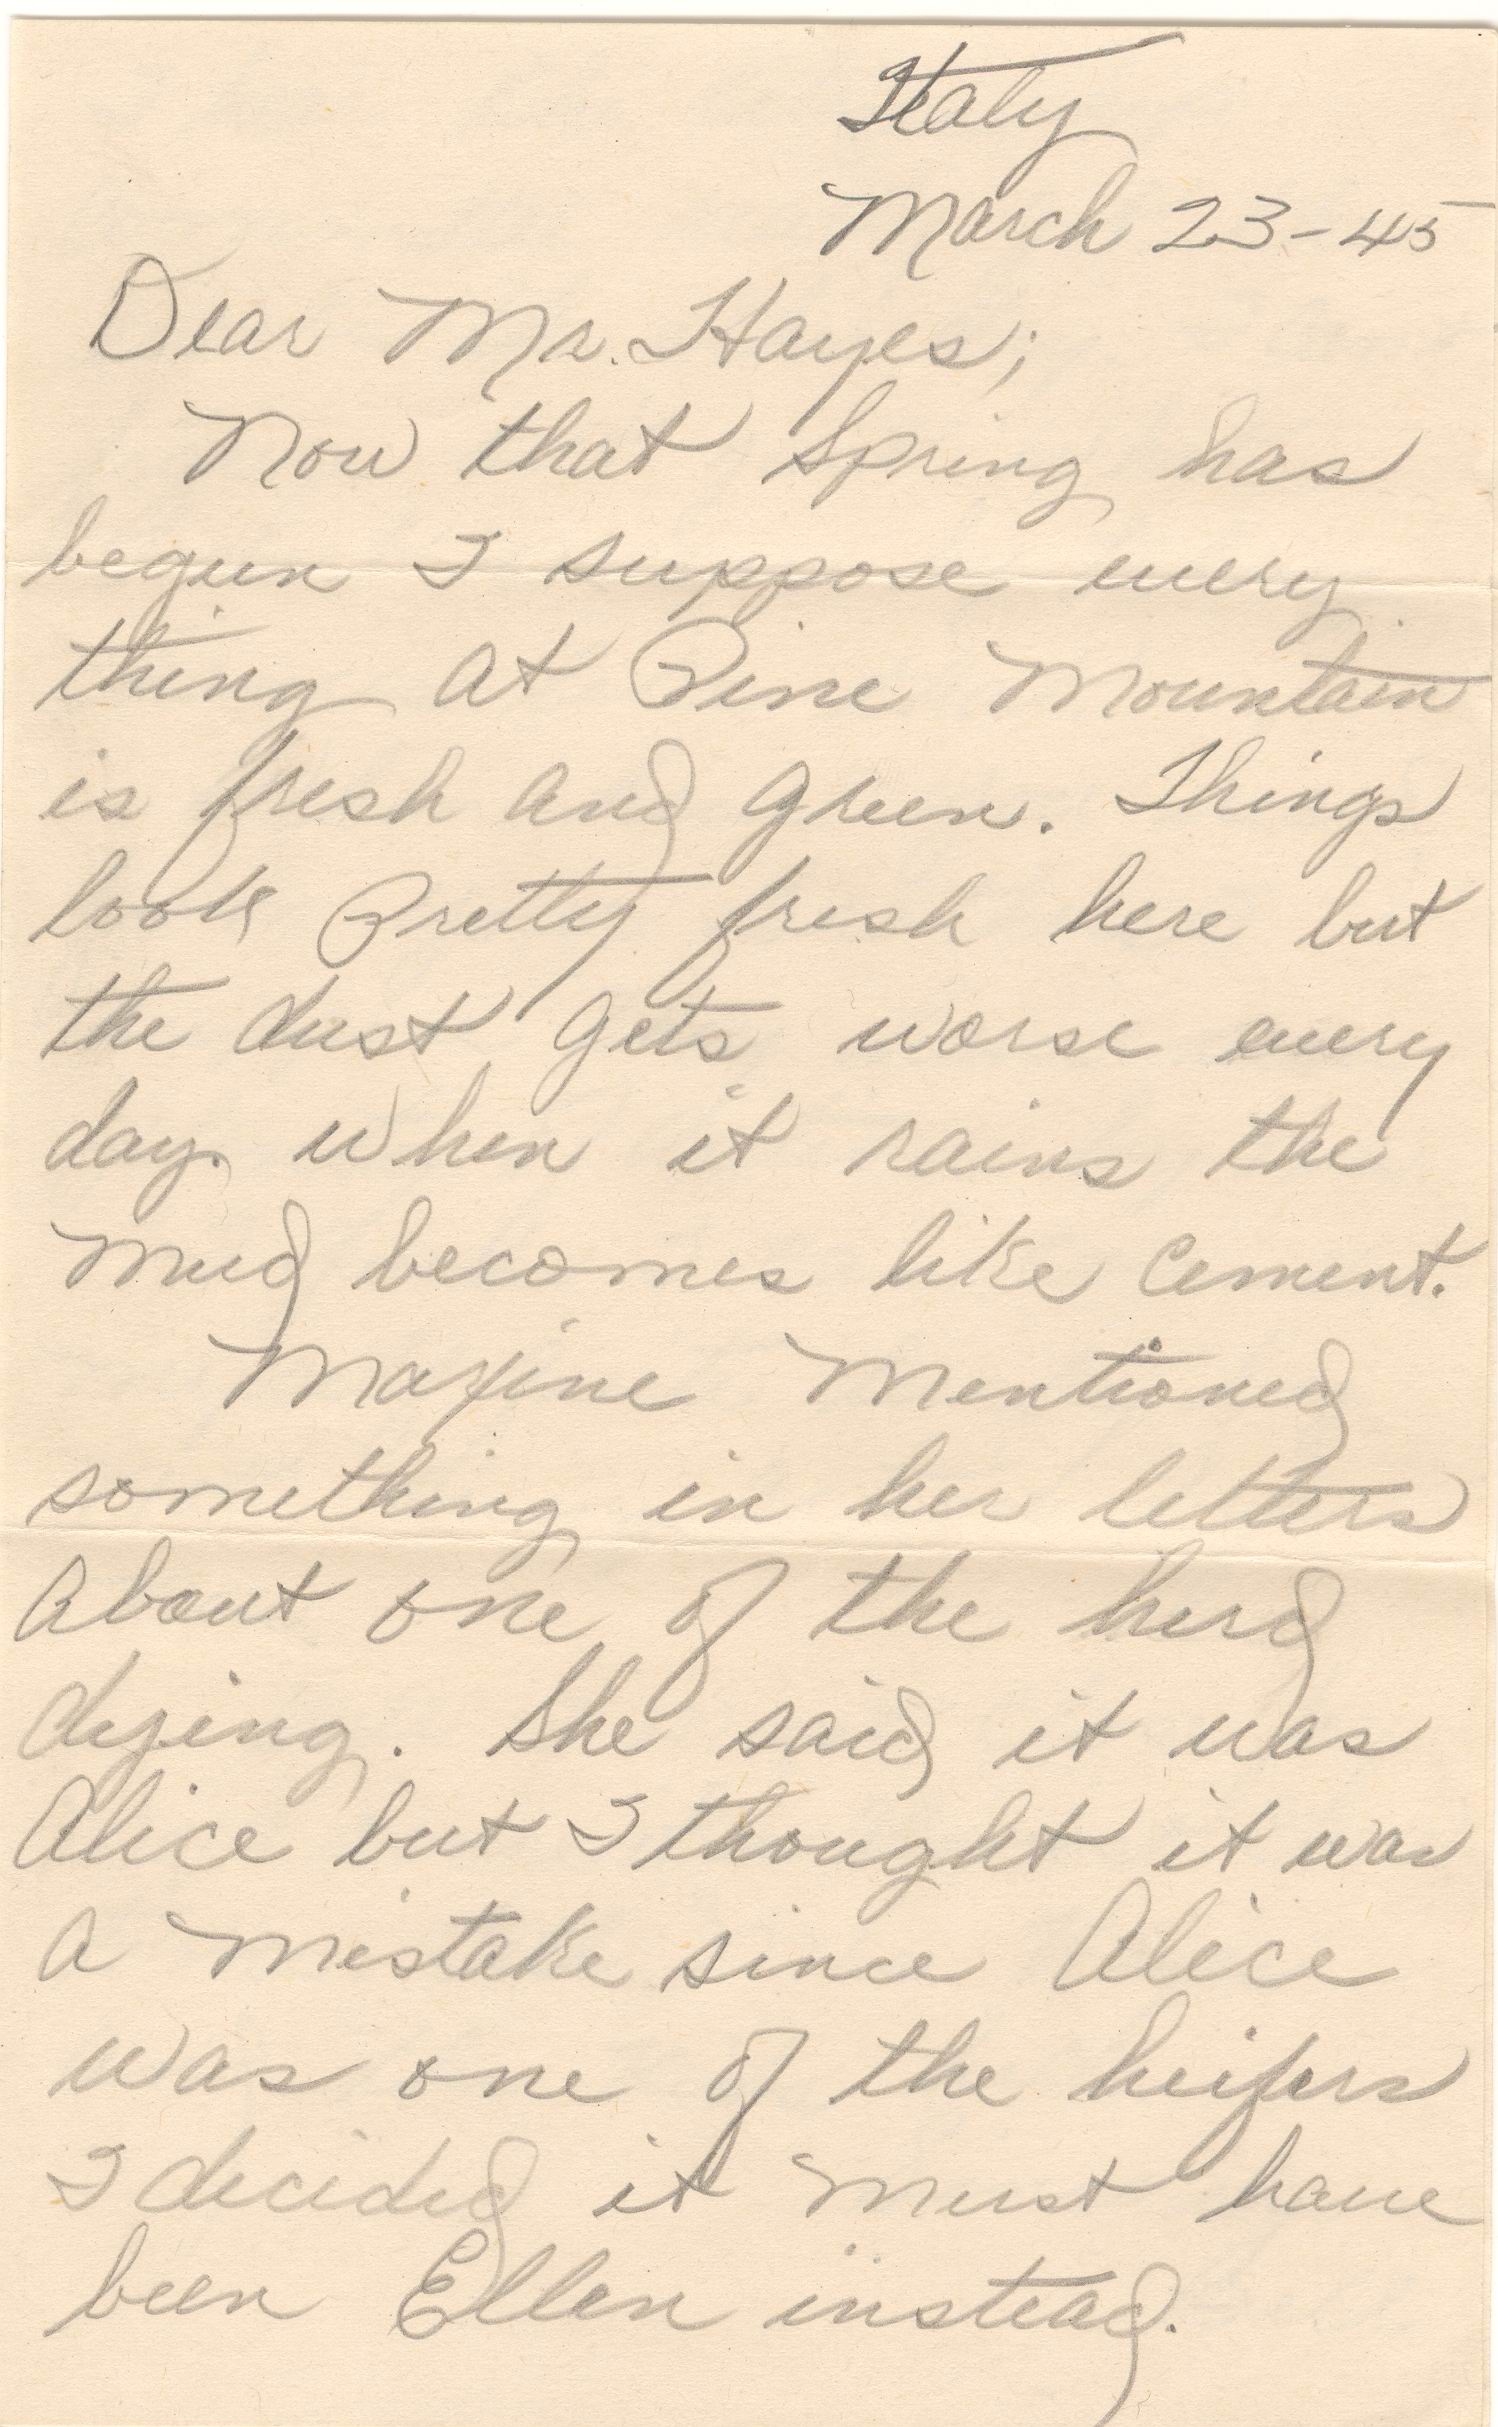 Italy
March 23-45
Dear Mr. Hayes;
Now that Spring has
begun I suppose every
thing at Pine Mountain
is fresh and green. Things
look Pretty fresh here but
the dust gets worse every
day. When it rains the
mud becomes like cement.
Maxine mentioned
something in her letters
about one of the herd
dying. She said it was
Alice but I thought it was
a mistake since Alice
was one of the heifers
I decided it must have
been Ellen instead.